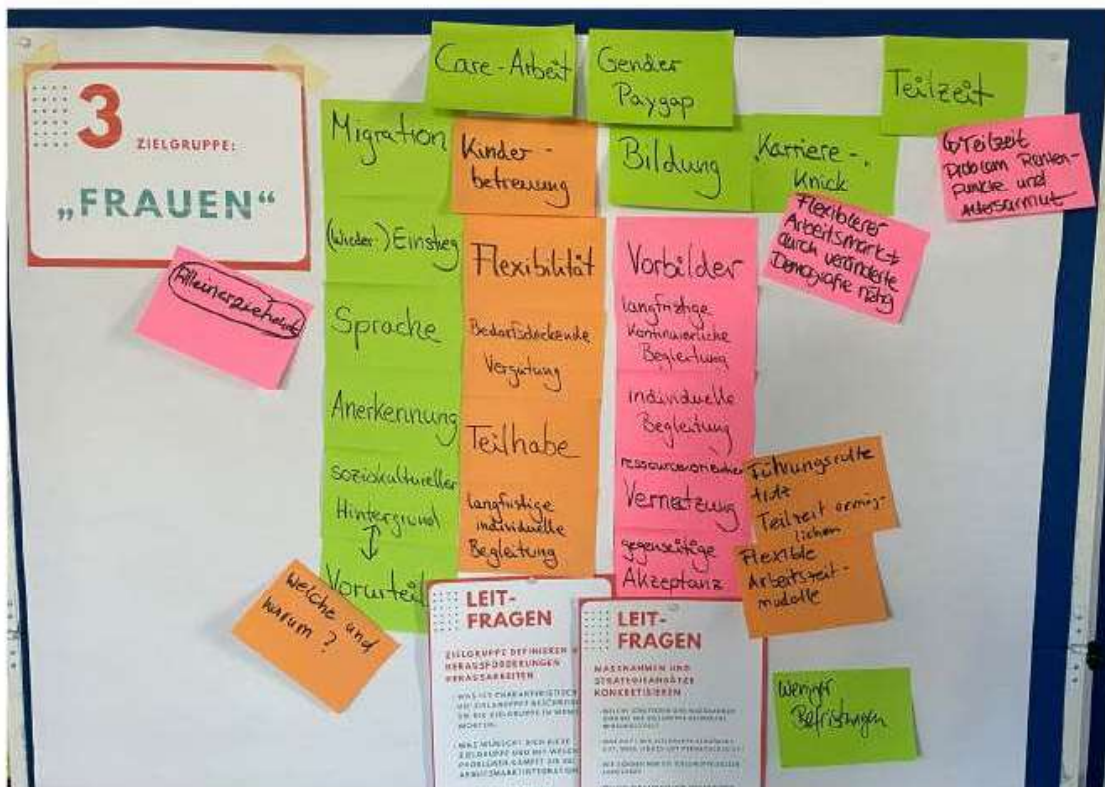 3
ZIELGRUPPE:
„FRAUEN“
Alleinerziehende
Care-Arbeit
Gender
Paygap
Teilzeit
Migration
(Wieder-)Einstieg
Sprache
Anerkennung
soziokultureller
Hintergrund
↕
Vorurteil
Welche und
warum?
Kinder-
betreuung
Flexibilität
Bedarfsdeckende
Vergütung
Teilhabe
langfristige
individuelle
Begleitung
Bildung
Vorbilder
langfristige
kontinuierliche
Begleitung
individuelle
Begleitung
Vernetzung
gegenseitige
Akzeptanz
Karriere-
Knick
Flexiblerer
Arbeitsmarkt
durch veränderte
Demografie nötig
Teilzeit
Problem Renten-
punkte und
Altersarmut
Führungsrolle
trotz
Teilzeit ermög-
lichen
Flexible
Arbeitszeit-
modelle
Weniger
Befristungen
LEIT-
FRAGEN
ZIELGRUPPE DEFINIEREN
HERAUSFORDERUNGEN
HERAUSARBEITEN
WAS IST CHARAKTERISTISCH
WAS WÜNSCHT SICH DIESE
ZIELGRUPPE UND MIT WELCHEN
PROBLEMEN KÄMPFT SIE
ARBEITSMARKTINTEGRATION
LEIT-
FRAGEN
MASSNAHMEN UND
STRATEGIEANSÄTZE
KONKRETISIEREN